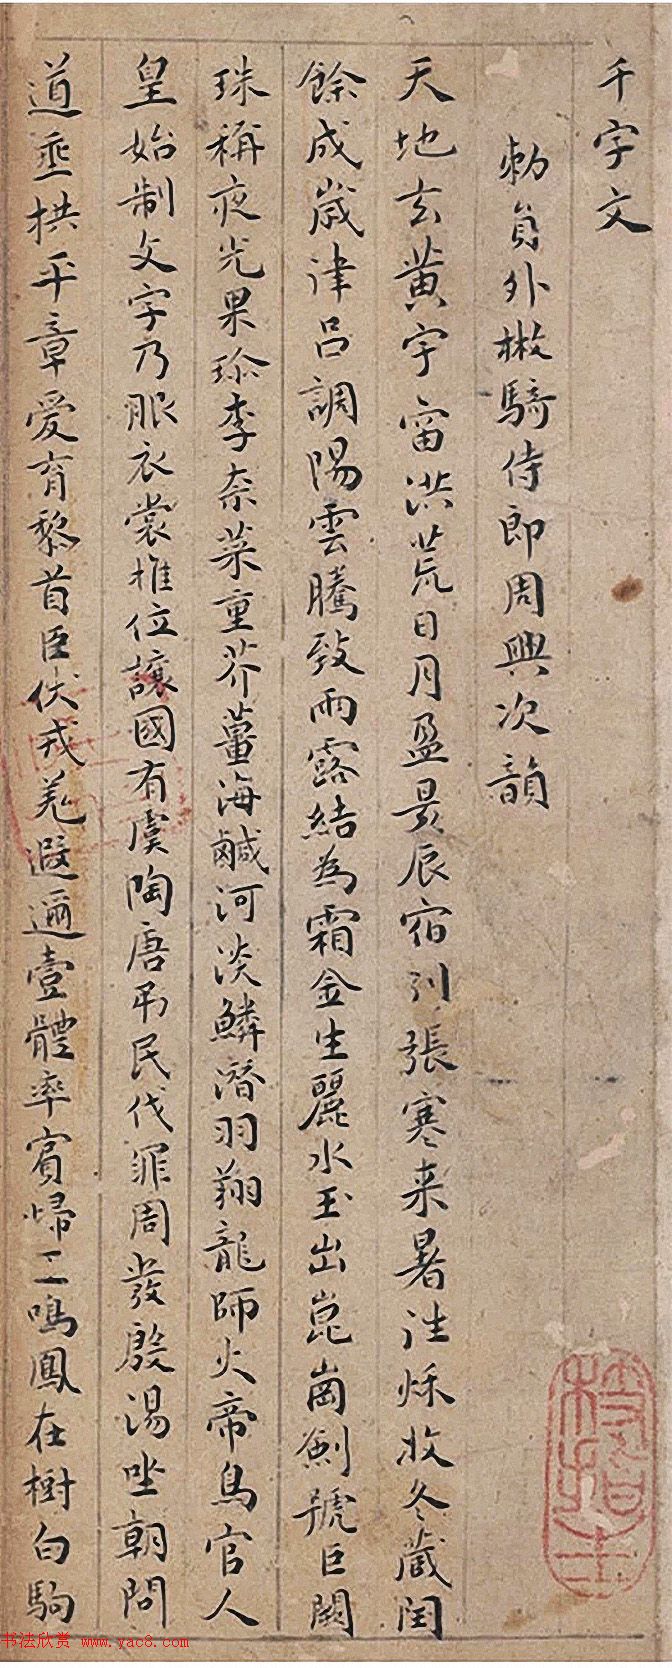 千字文
勅員外散騎侍郎周興次韻
天地玄黄宇宙洪荒日月盈昃辰宿列張寒来暑往秋收冬藏閏
餘成歲律吕調陽雲騰致雨露結為霜金生麗水玉出崑崗劍號巨闕
珠稱夜光果珎李柰菜重芥薑海鹹河淡鱗潛羽翔龍師火帝鳥官人
皇始制文字乃服衣裳推位讓國有虞陶唐弔民伐罪周發殷湯坐朝問
道垂拱平章愛育黎首臣伏戎羌遐邇壹體率賓歸王鳴鳳在樹白駒
枝指生
书法欣赏 www.yac8.com